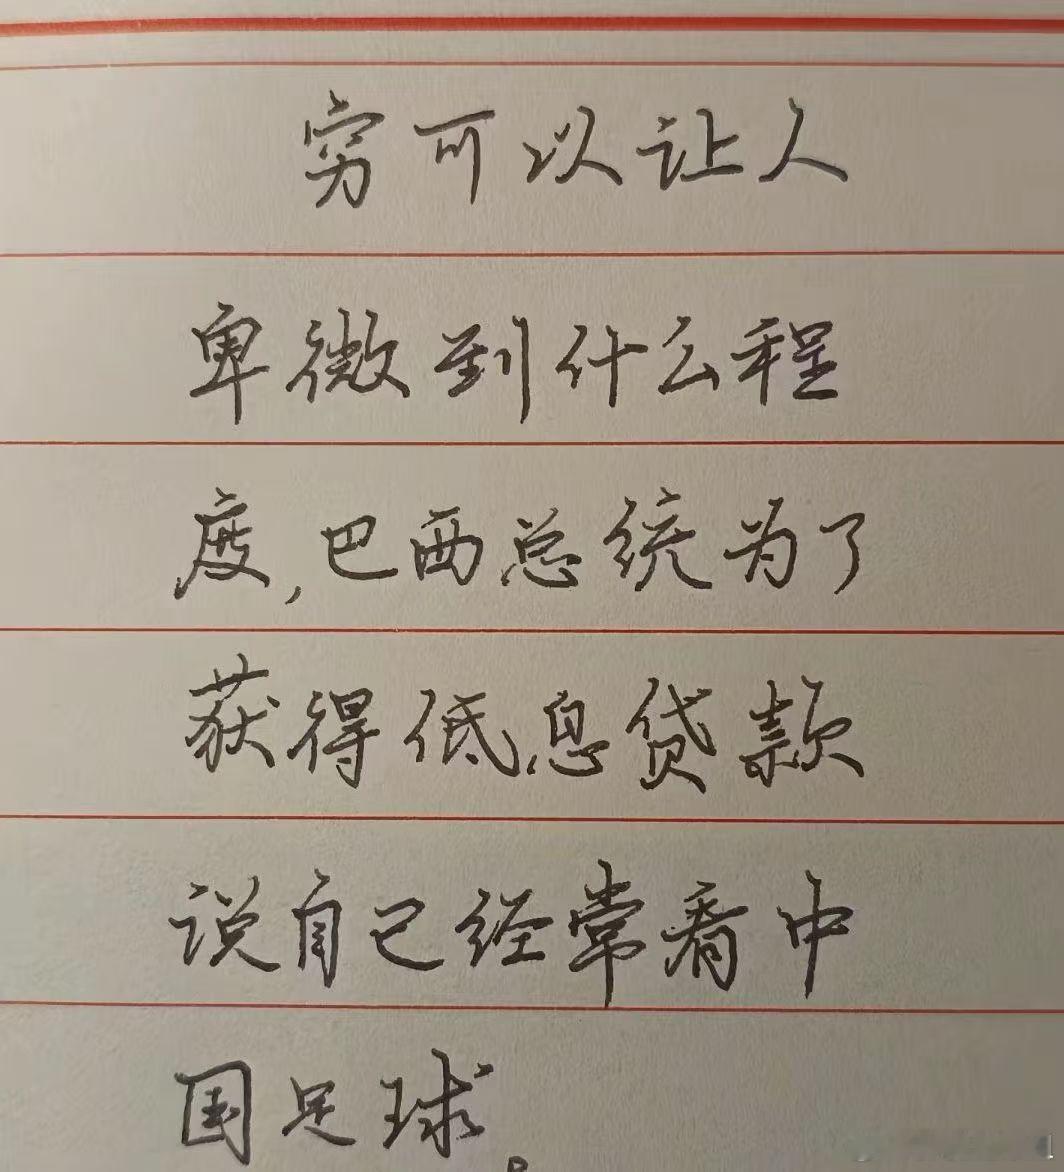 穷可以让人
卑微到什么程
度,巴西总统为了
获得低息贷款
说自己经常看中
国足球。